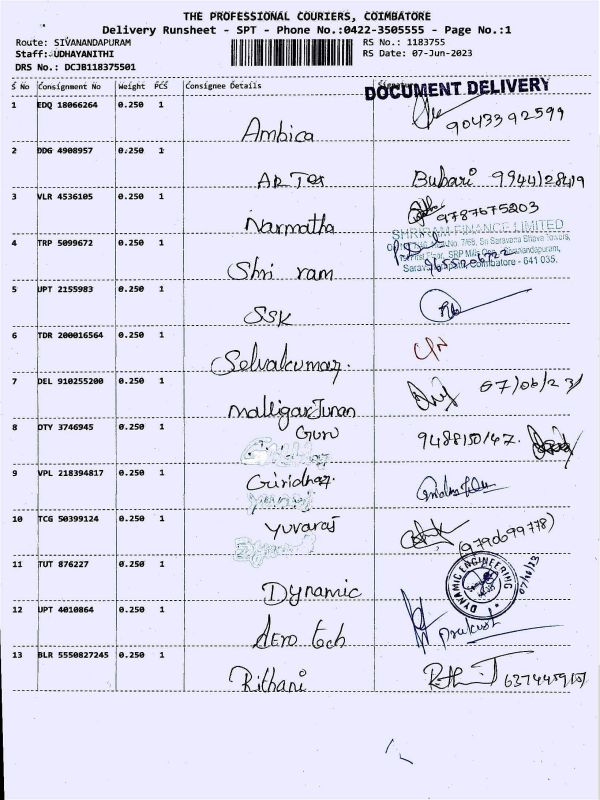 THE PROFESSIONAL COURIERS, COIMBATORE
Delivery Runsheet - SPT - Phone No.:0422-3505555 - Page No.:1
Route: SIVANANDAPURAM RS No.: 1183755
Staff: UDHAYANITHI RS Date: 07-Jun-2023
DRS No.: DCJB118375501
S No Consignment No Weight PCS Consignee Details
DOCUMENT DELIVERY
1 EDQ 18066264 0.250 1
Ambica 9043392599
2 DDG 4908957 0.250 1
Bubari 9944128419
3 VLR 4536105 0.250 1
Narmatha 9787675203
SHRIRAM FINANCE LIMITED
4 TRP 5099672 0.250 1
Shri ram
Coimbatore - 641 035.
5 UPT 2155983 0.250 1
SSK
6 TDR 200016564 0.250 1
Selvakumar.
7 DEL 910255200 0.250 1
07/06/23
MalligarJunan
8 DTY 3746945 0.250 1
Guru 9488150147.
9 VPL 218394817 0.250 1
Giridhar
10 TCG 50399124 0.250 1
Yuvaraj (9790699778)
11 TUT 876227 0.250 1
Dynamic
DYNAMIC ENGINEERING
07/06/23
12 UPT 4010864 0.250 1
Aero tech Prakash
13 BLR 5550827245 0.250 1
Rithani